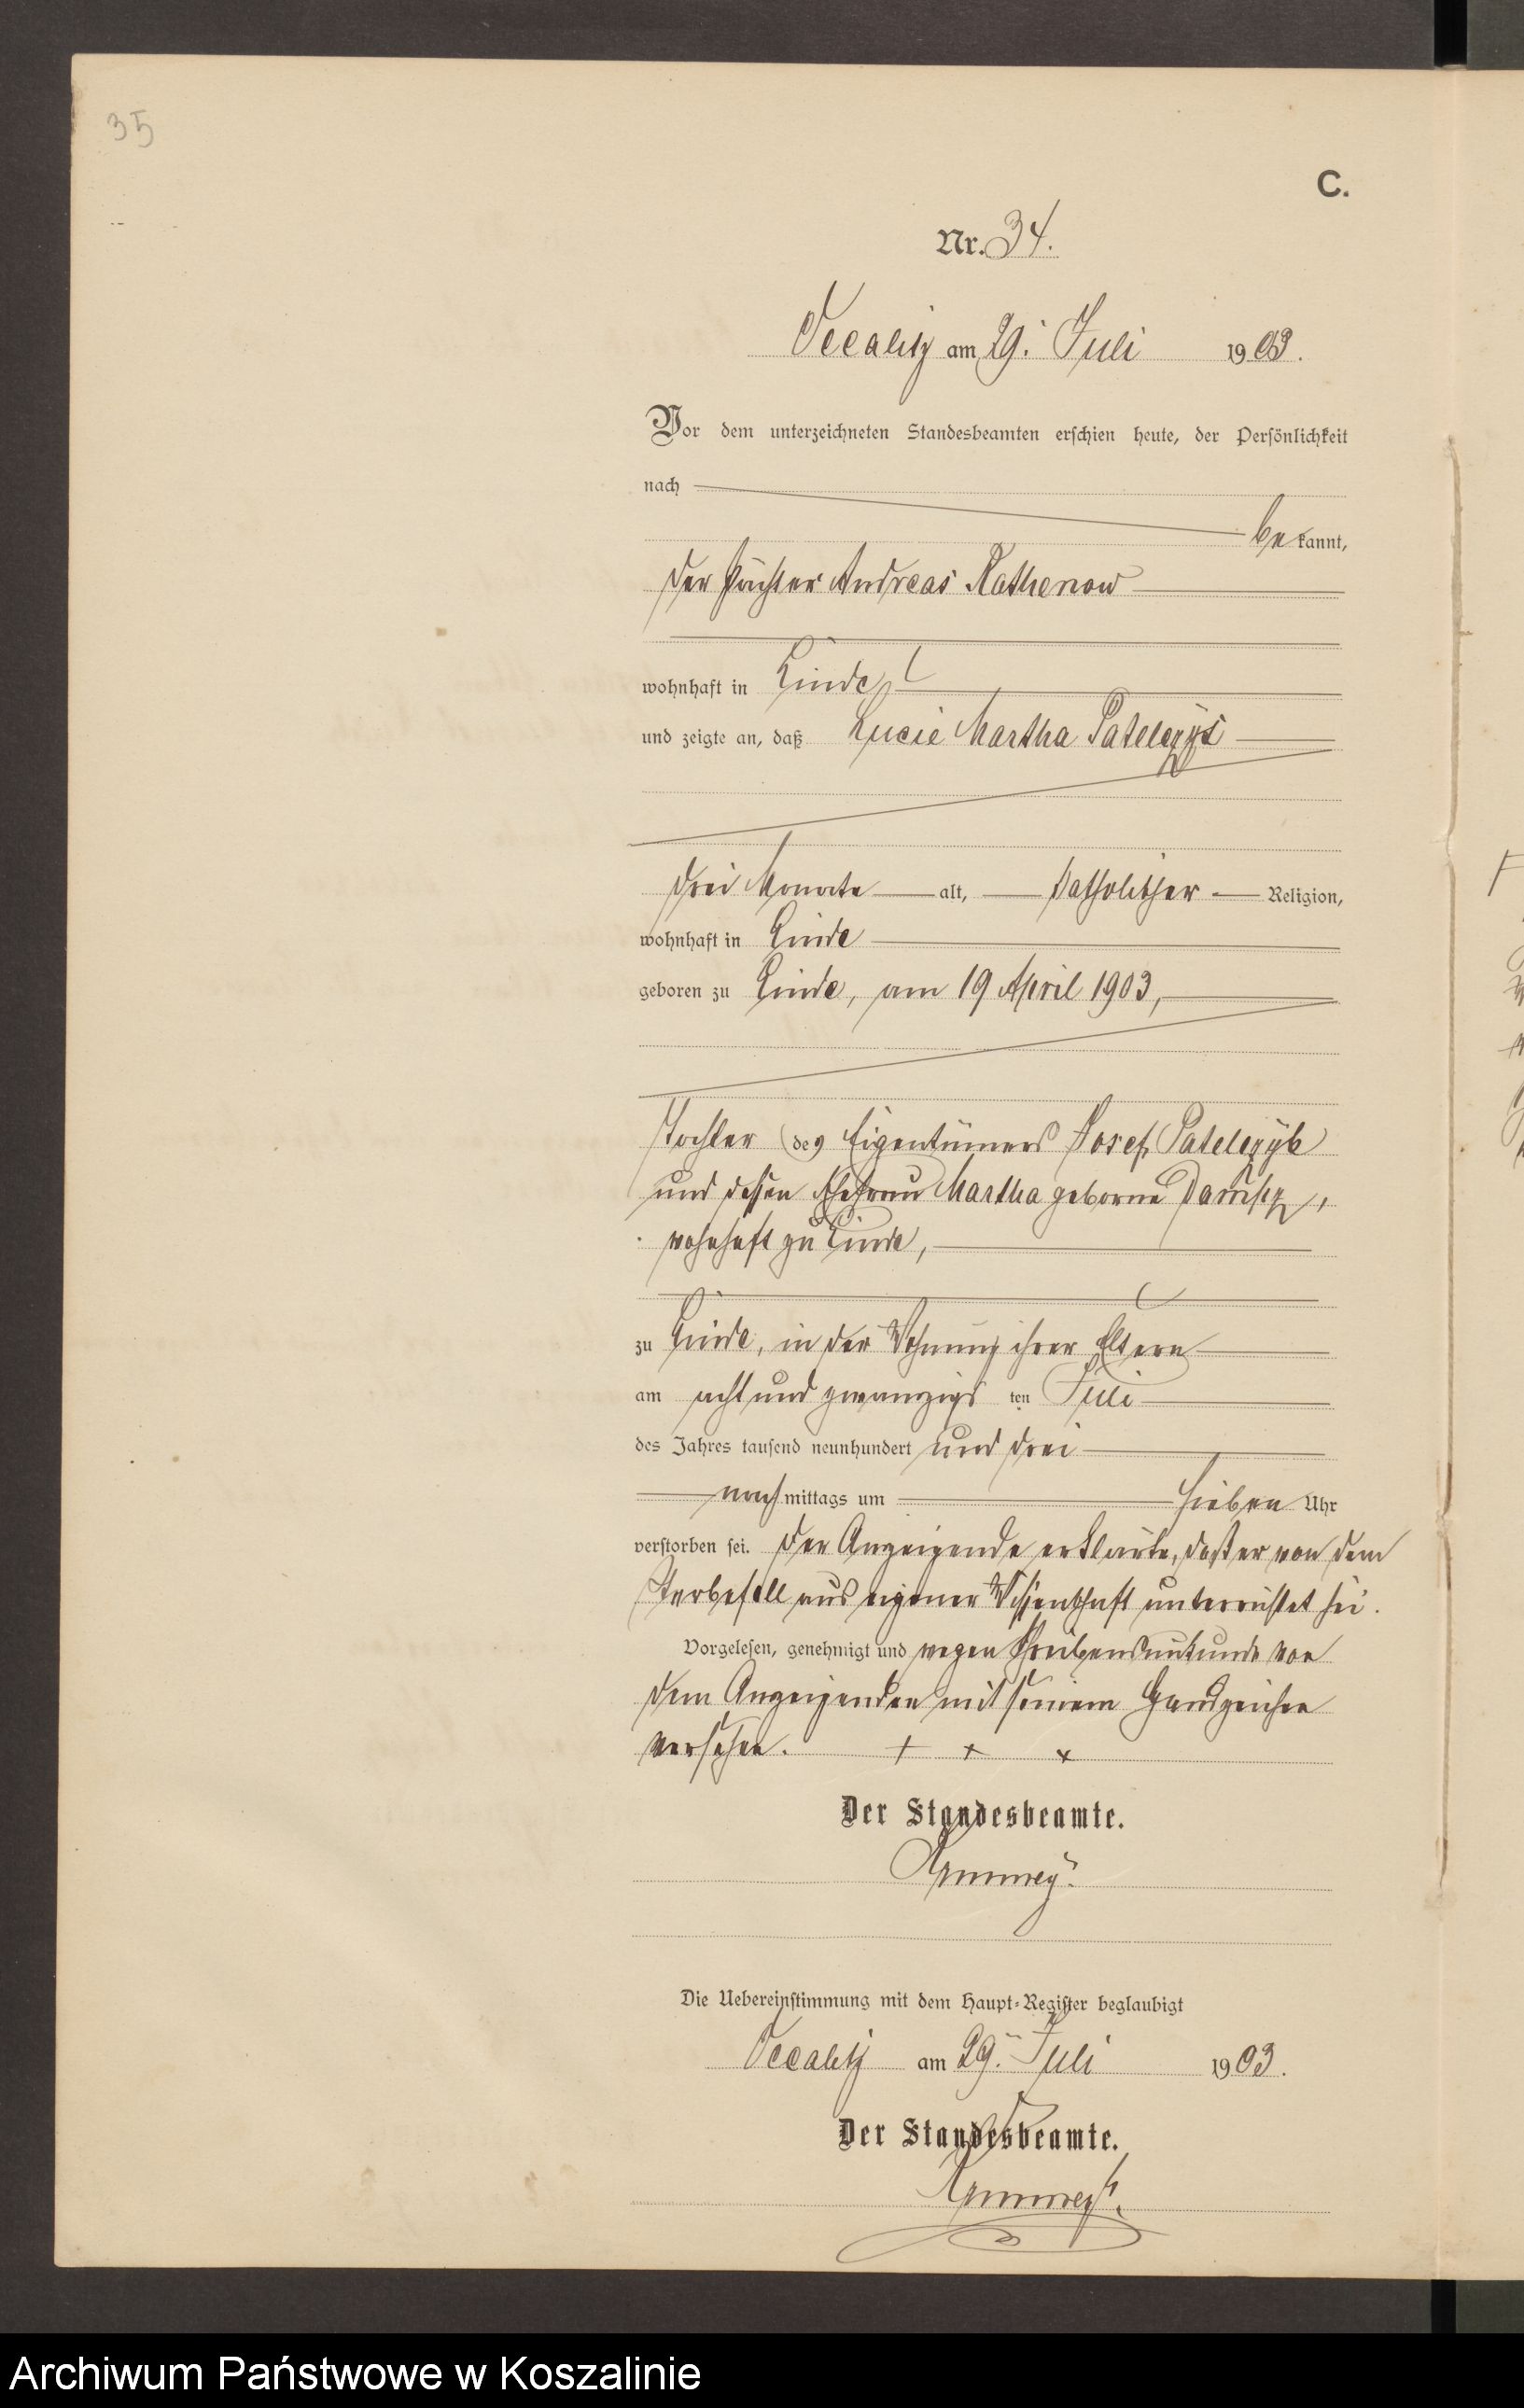 35
C.
Nr. 34.
am 29. Juli 1903.
Vor dem unterzeichneten Standesbeamten erschien heute, der Persönlichkeit
nach
bekannt,
der Pächter Andreas Rathenow
wohnhaft in Linde
und zeigte an, daß Lucie Martha
drei Monate alt, katholischer Religion,
wohnhaft in Linde
geboren zu Linde, am 19 April 1903,
Tochter des Eigentümers Josef
und dessen Ehefrau Martha geborne
wohnhaft zu Linde,
zu Linde, in der Wohnung ihrer Eltern
am acht und zwanzigsten Juli
des Jahres tausend neunhundert und drei
nachmittags um sieben Uhr
verstorben sei. Der Anzeigende erklärte, daß er von dem
Sterbefall aus eigener Wissenschaft unterrichtet sei.
Vorgelesen, genehmigt und wegen Schreibensunkunde von
dem Anzeigenden mit seinem Handzeichen
versehen. + + x
Der Standesbeamte.
Die Uebereinstimmung mit dem Haupt-Register beglaubigt
am 29. Juli 1903.
Der Standesbeamte.
Archiwum Państwowe w Koszalinie